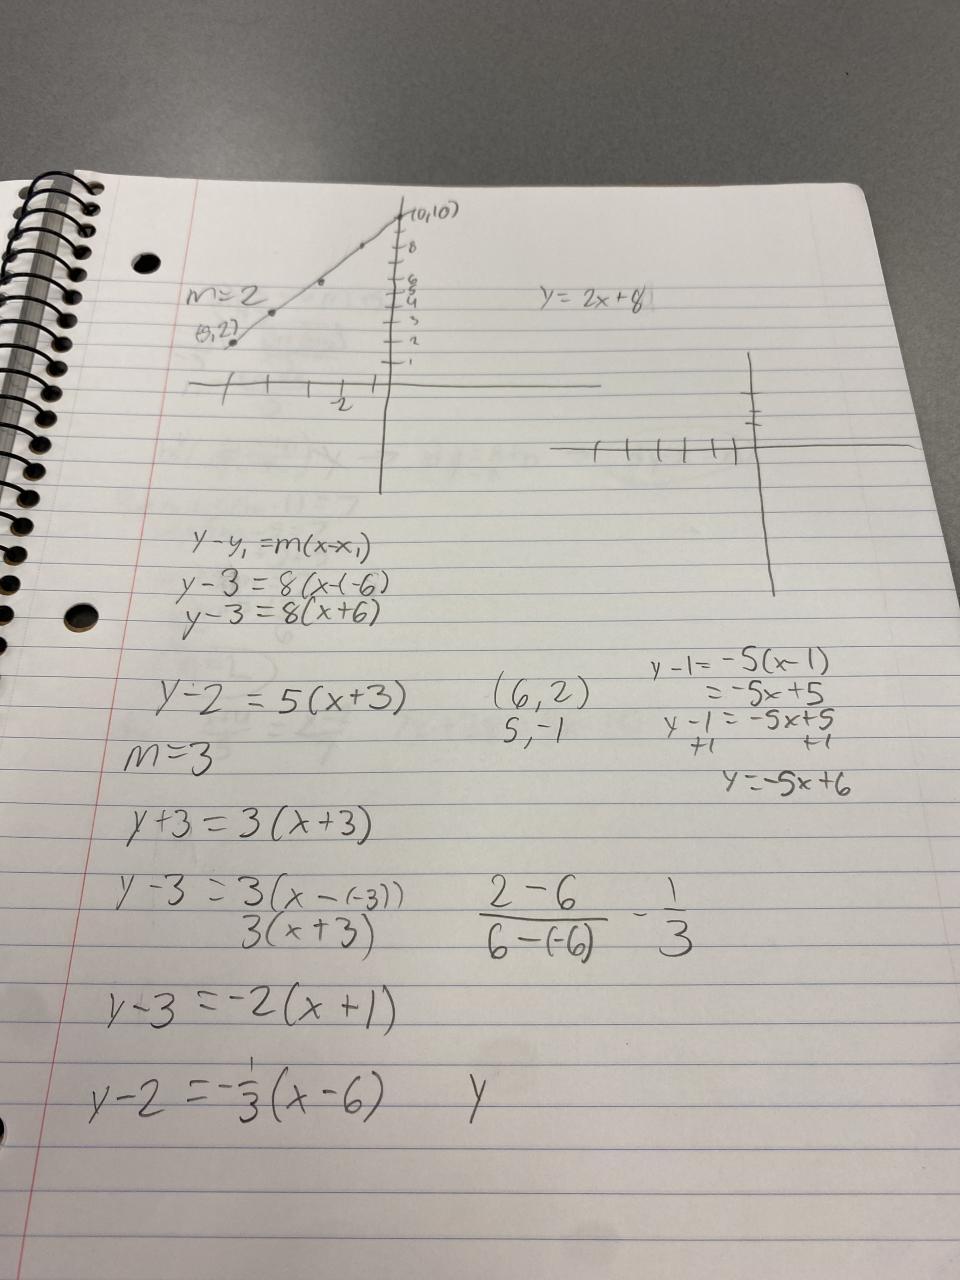 (0,10)
8
6
5
4
3
2
1
m=2
y= 2x+8
-2
y-y₁ =m(x-x₁)
y-3 = 8(x-(-6)
y-3 =8(x+6)
y-2 = 5(x+3)
(6,2)
5,-1
y-1= -5(x-1)
= -5x+5
y-1 = -5x+5
+1 +1
y=-5x+6
m=3
y+3 = 3(x+3)
y-3 = 3(x-(-3))
3(x+3)
2-6
6-(-6)
- 1
3
y-3 = -2(x+1)
y-2 = -1/3(x-6)
y